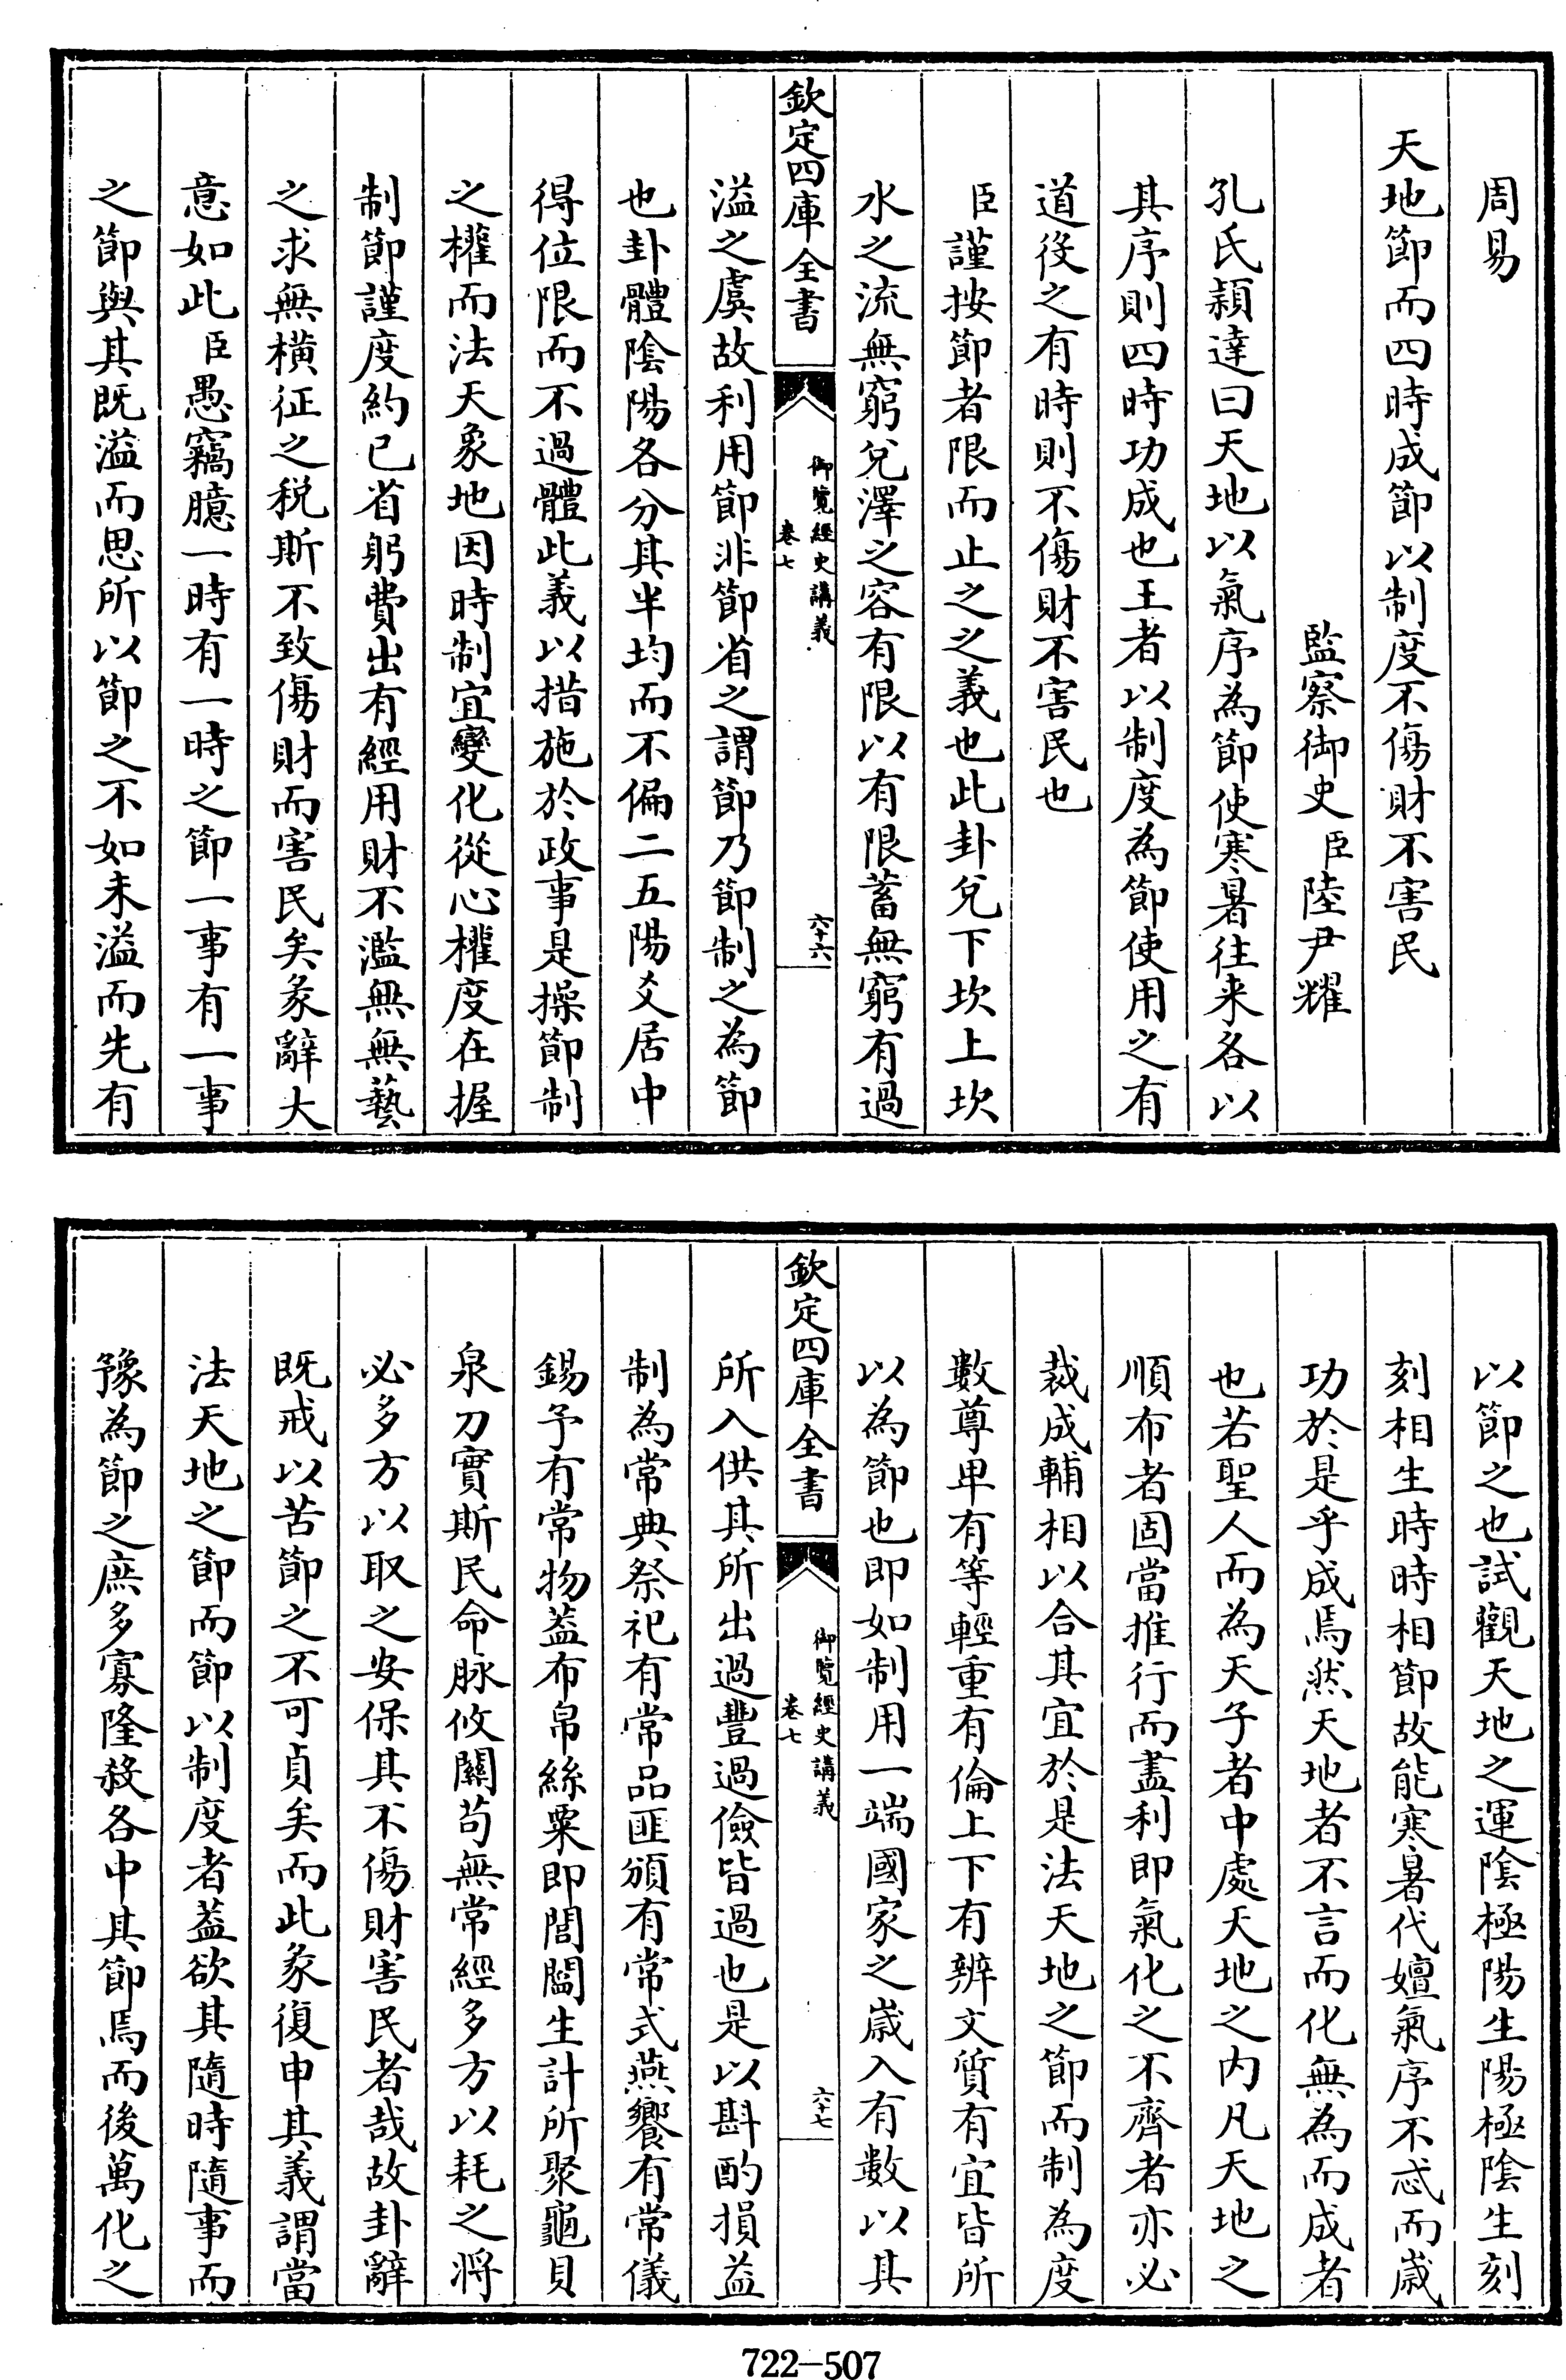 周易
天地節而四時成節以制度不傷財不害民
監察御史臣陸尹耀
孔氏穎達曰天地以氣序為節使寒暑往来各以
其序則四時功成也王者以制度為節使用之有
道役之有時則不傷財不害民也
臣謹按節者限而止之之義也此卦兌下坎上坎
水之流無窮兌澤之容有限以有限蓄無窮有過
欽定四庫全書
御覽經史講義
卷七
六十六
溢之虞故利用節非節省之謂節乃節制之為節
也卦體陰陽各分其半均而不偏二五陽爻居中
得位限而不過體此義以措施於政事是操節制
之權而法天象地因時制宜變化從心權度在握
制節謹度約己省躬費出有經用財不濫無無藝
之求無橫征之稅斯不致傷財而害民矣彖辭大
意如此臣愚竊臆一時有一時之節一事有一事
之節與其既溢而思所以節之不如未溢而先有
以節之也試觀天地之運陰極陽生陽極陰生刻
刻相生時時相節故能寒暑代嬗氣序不忒而歲
功於是乎成焉然天地者不言而化無為而成者
也若聖人而為天子者中處天地之內凡天地之
順布者固當推行而盡利即氣化之不齊者亦必
裁成輔相以合其宜於是法天地之節而制為度
數尊卑有等輕重有倫上下有辨文質有宜皆所
以為節也即如制用一端國家之歲入有數以其
欽定四庫全書
御覽經史講義
卷七
六十七
所入供其所出過豐過儉皆過也是以斟酌損益
制為常典祭祀有常品匪頒有常式燕饗有常儀
錫予有常物葢布帛絲粟即閭閻生計所聚龜貝
泉刀實斯民命脉攸關苟無常經多方以耗之將
必多方以取之安保其不傷財害民者哉故卦辭
既戒以苦節之不可貞矣而此彖復申其義謂當
法天地之節而節以制度者葢欲其隨時隨事而
豫為節之庶多寡隆殺各中其節焉而後萬化之
722-507